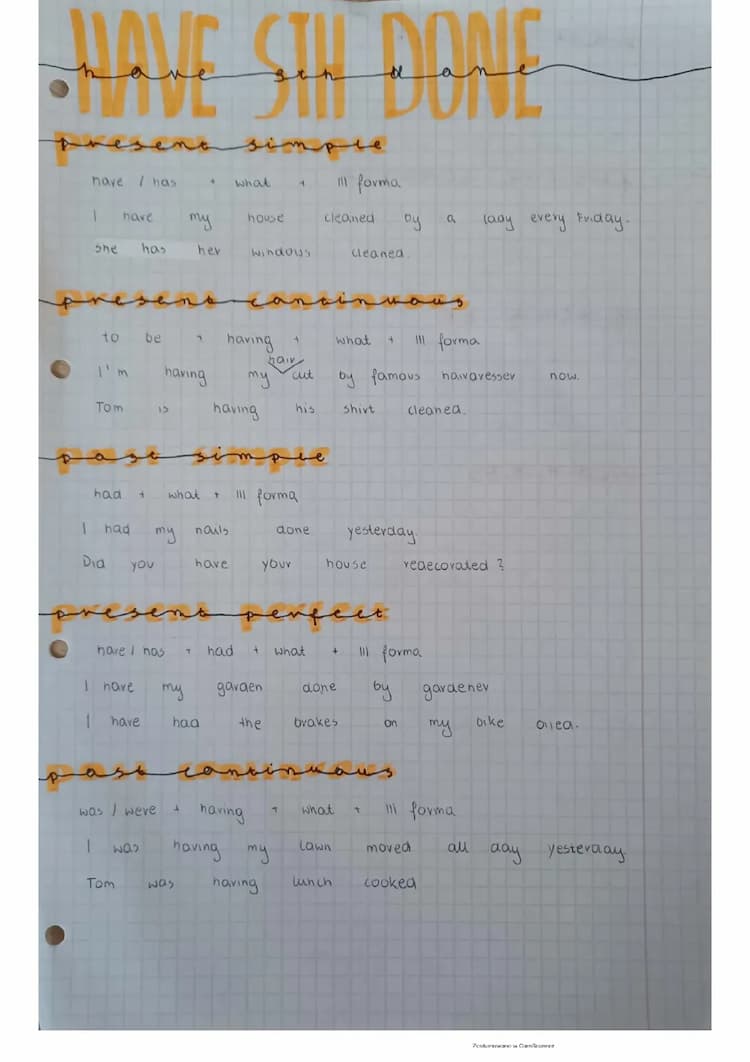 HAVE STH DONE
have sth done
present simple
have / has + what + III forma
I have my house cleaned by a lady every Friday.
She has her windows cleaned.
present continuous
to be + having + what + III forma
hair
I'm having my cut by famous hairdresser now.
Tom is having his shirt cleaned.
past simple
had + what + III forma
I had my nails done yesterday.
Did you have your house redecorated ?
present perfect
have / has + had + what + III forma
I have my garden done by gardener
I have had the brakes on my bike oiled.
past continuous
was / were + having + what + III forma
I was having my lawn moved all day yesterday
Tom was having lunch cooked